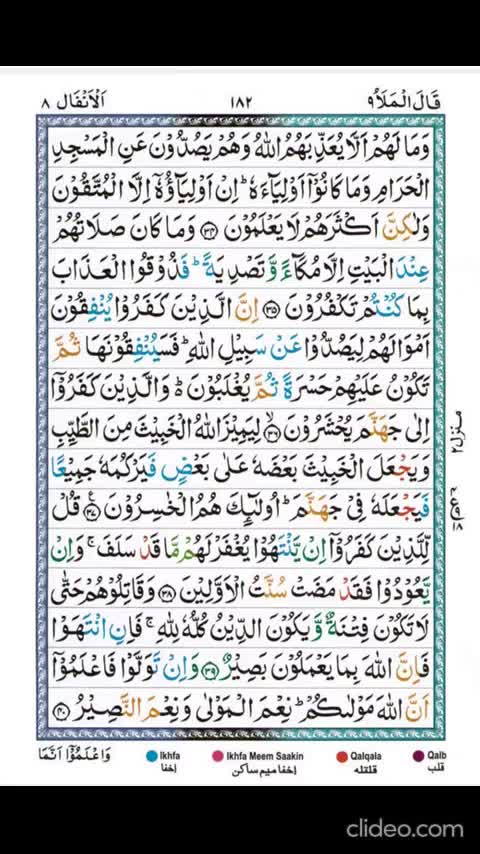 قَالَ الْمَلَاُ ٩
١٨٢
اَلْاَنْفَال ٨
وَمَا لَهُمْ اَلَّا يُعَذِّبَهُمُ اللّٰهُ وَهُمْ يَصُدُّوْنَ عَنِ الْمَسْجِدِ
الْحَرَامِ وَمَا كَانُوْٓا اَوْلِيَآءَهٗ ؕ اِنْ اَوْلِيَآؤُهٗٓ اِلَّا الْمُتَّقُوْنَ
وَلٰكِنَّ اَكْثَرَهُمْ لَا يَعْلَمُوْنَ ۝٣٤ وَمَا كَانَ صَلَاتُهُمْ
عِنْدَ الْبَيْتِ اِلَّا مُكَآءً وَّ تَصْدِيَةً ؕ فَذُوْقُوا الْعَذَابَ
بِمَا كُنْتُمْ تَكْفُرُوْنَ ۝٣٥ اِنَّ الَّذِيْنَ كَفَرُوْا يُنْفِقُوْنَ
اَمْوَالَهُمْ لِيَصُدُّوْا عَنْ سَبِيْلِ اللّٰهِ ؕ فَسَيُنْفِقُوْنَهَا ثُمَّ
تَكُوْنُ عَلَيْهِمْ حَسْرَةً ثُمَّ يُغْلَبُوْنَ ؕ وَالَّذِيْنَ كَفَرُوْٓا
اِلٰى جَهَنَّمَ يُحْشَرُوْنَ ۝٣٦ لِيَمِيْزَ اللّٰهُ الْخَبِيْثَ مِنَ الطَّيِّبِ
وَيَجْعَلَ الْخَبِيْثَ بَعْضَهٗ عَلٰى بَعْضٍ فَيَرْكُمَهٗ جَمِيْعًا
فَيَجْعَلَهٗ فِيْ جَهَنَّمَ ؕ اُولٰٓئِكَ هُمُ الْخٰسِرُوْنَ ۝٣٧ قُلْ
لِّلَّذِيْنَ كَفَرُوْٓا اِنْ يَّنْتَهُوْا يُغْفَرْ لَهُمْ مَّا قَدْ سَلَفَ ۚ وَاِنْ
يَّعُوْدُوْا فَقَدْ مَضَتْ سُنَّتُ الْاَوَّلِيْنَ ۝٣٨ وَقَاتِلُوْهُمْ حَتّٰى
لَا تَكُوْنَ فِتْنَةٌ وَّ يَكُوْنَ الدِّيْنُ كُلُّهٗ لِلّٰهِ ۚ فَاِنِ انْتَهَوْا
فَاِنَّ اللّٰهَ بِمَا يَعْمَلُوْنَ بَصِيْرٌ ۝٣٩ وَاِنْ تَوَلَّوْا فَاعْلَمُوْٓا
اَنَّ اللّٰهَ مَوْلٰىكُمْ ؕ نِعْمَ الْمَوْلٰى وَنِعْمَ النَّصِيْرُ ۝٤٠
منزل ٢
وَاعْلَمُوْٓا اَنَّمَا
Ikhfa
Ikhfa Meem Saakin
Qalqala
Qalb
اخفا
اخفا میم ساکن
قلقله
قلب
clideo.com